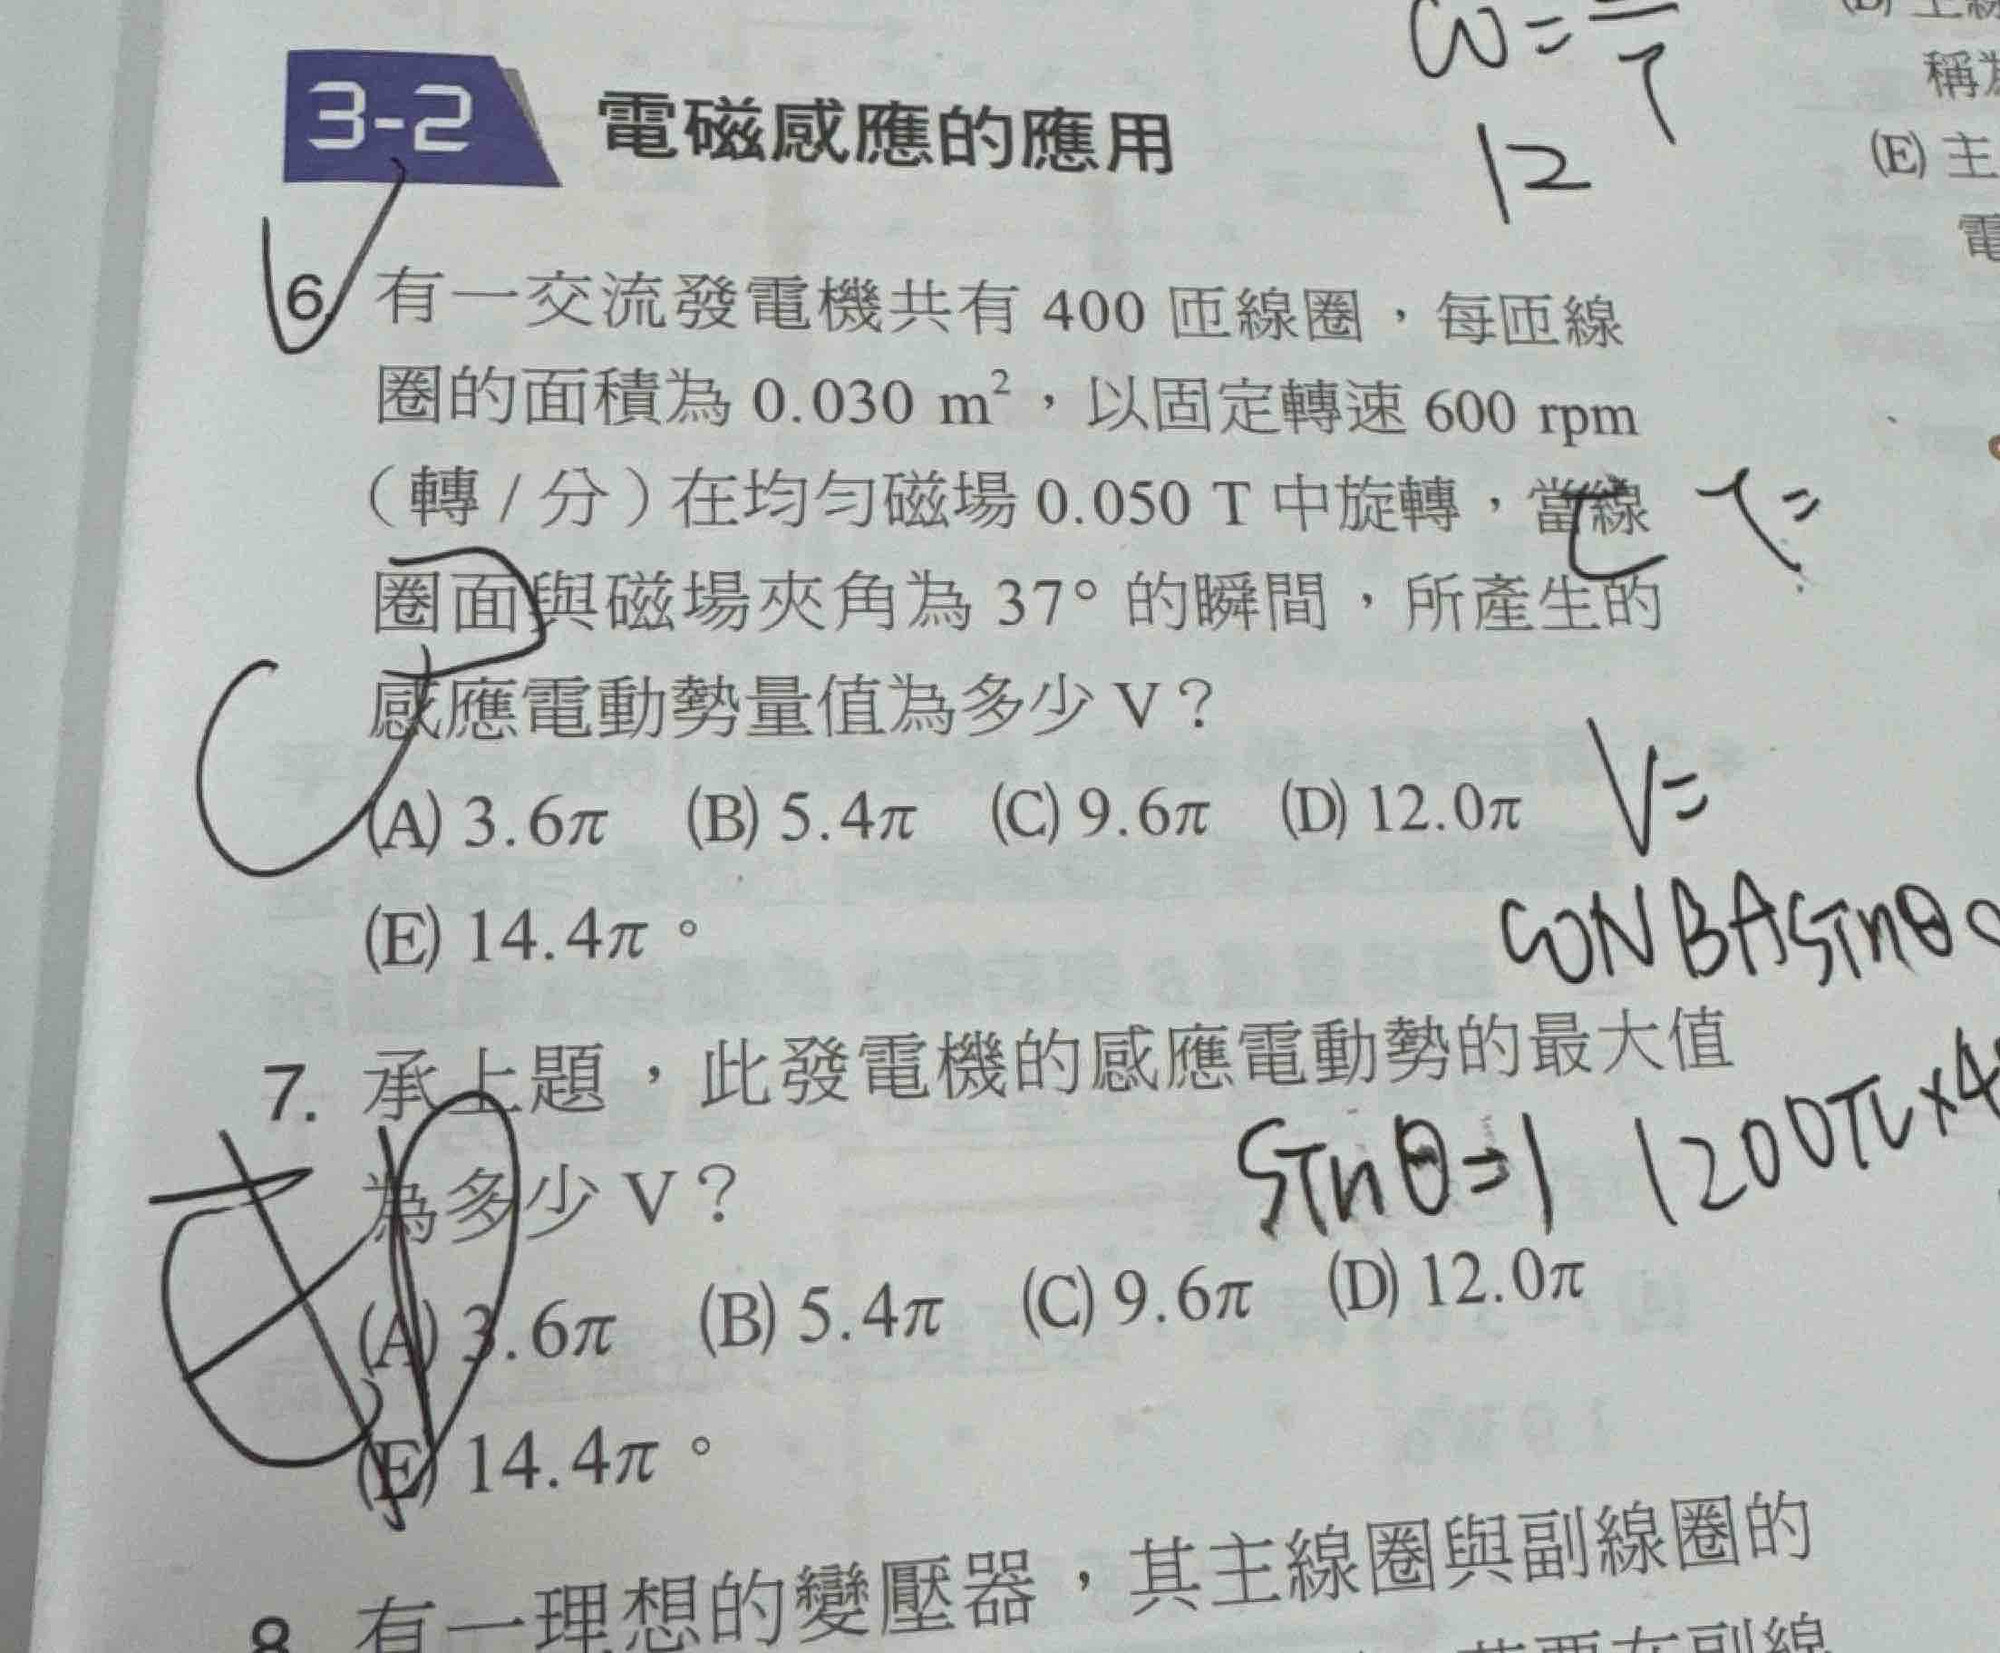 ω=
T
12
稱
(E) 主
電
3-2 電磁感應的應用
6. 有一交流發電機共有 400 匝線圈，每匝線
圈的面積為 0.030 m²，以固定轉速 600 rpm
（轉 / 分）在均勻磁場 0.050 T 中旋轉，當線
圈面與磁場夾角為 37° 的瞬間，所產生的
感應電動勢量值為多少 V？
(A) 3.6π (B) 5.4π (C) 9.6π (D) 12.0π
(E) 14.4π。
V=
ωNBAsinθ
7. 承上題，此發電機的感應電動勢的最大值
為多少 V？
sinθ=1 1200π×4
(A) 3.6π (B) 5.4π (C) 9.6π (D) 12.0π
(E) 14.4π。
8. 有一理想的變壓器，其主線圈與副線圈的
若要在副線